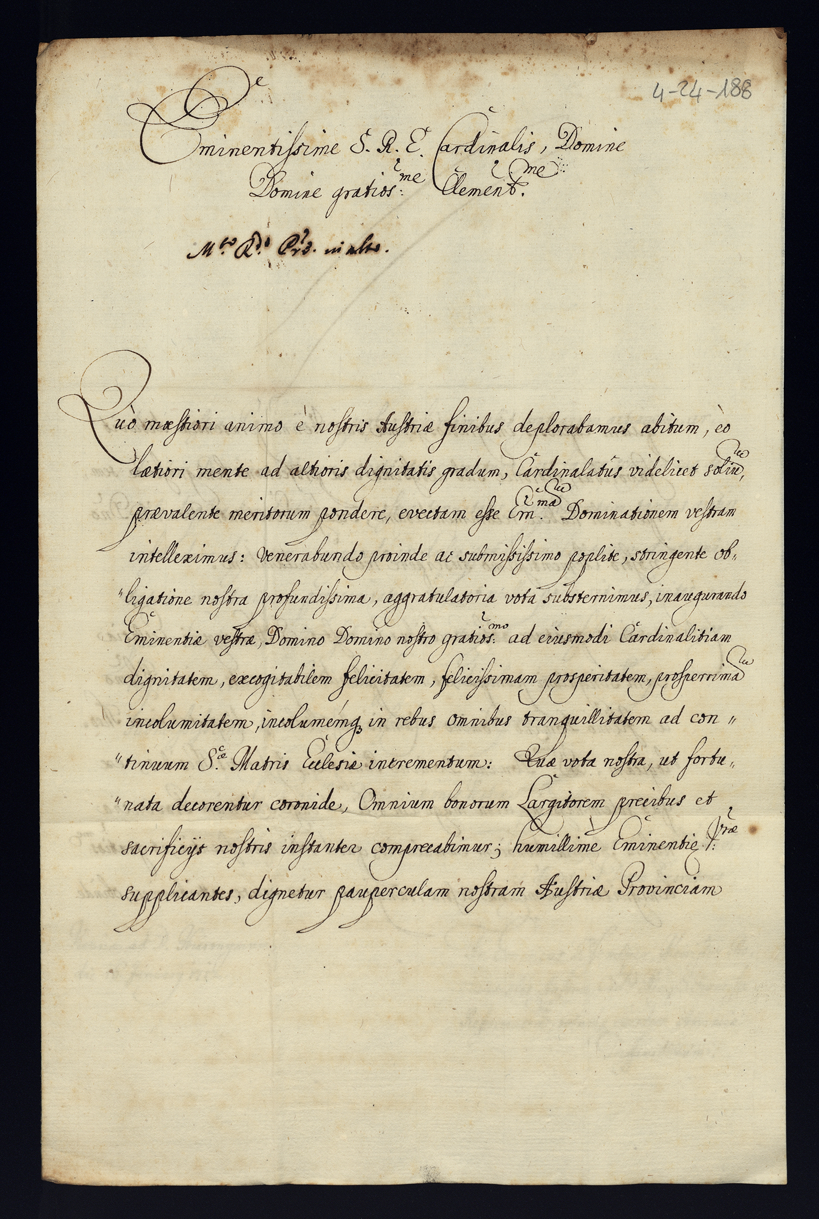 4-24-188
Eminentissime S. R. E. Cardinalis, Domine
Domine gratios:me Clement.me
Quò mæstiori animo è nostris Austriæ finibus deplorabamus abitum, eò
lætiori mente ad altioris dignitatis gradum, Cardinalatûs videlicet
prævalente meritorum pondere, evectam esse Em.ma Dominationem vestram
intelleximus: venerabundo proinde ac submississimo poplite, stringente ob„
„ligatione nostra profundissima, aggratulatoria vota substernimus, inaugurando
Eminentiæ vestræ, Domino Domino nostro gratios:mo ad eiusmodi Cardinalitiam
dignitatem, excogitabilem felicitatem, felicissimam prosperitatem, prosperrimã
incolumitatem, incolumémq, in rebus omnibus tranquillitatem ad con„
„tinuum S.æ Matris Ecclesiæ incrementum: Quæ vota nostra, ut fortu„
„nata decorentur coronide, Omnium bonorum Largitorem precibus et
sacrificijs nostris instanter comprecabimur; humillimè Eminentiæ V:ræ
supplicantes, dignetur pauperculam nostram Austriæ Provinciam